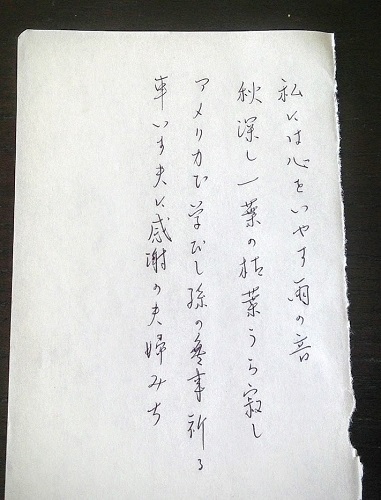 私には心をいやす雨の音
秋深し一葉の枯葉うら寂し
アメリカで学びし孫の無事祈る
車いす夫に感謝の夫婦みち